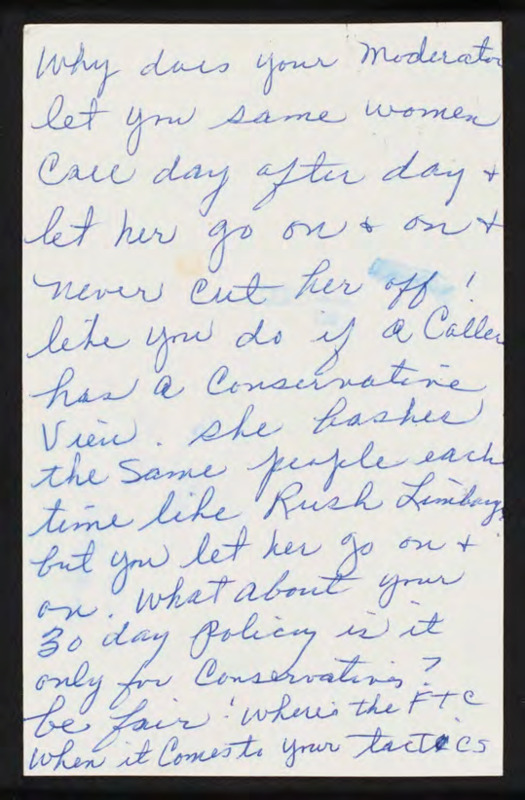 Why does your Moderator
let you same women
Call day after day +
let her go on & on +
never cut her off !
like you do if a Caller
has a Conservative
View. She bashes
the Same people each
time like Rush Limbaug
but you let her go on +
on. What about your
30 day policy is it
only for Conservatives?
be fair! Where's the FTC
When it Comes to your tactics